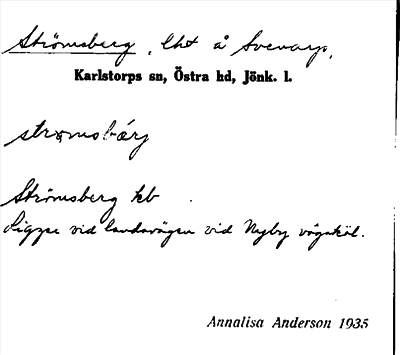 Strömsberg, lht å Svenarp,
Karlstorps sn, Östra hd, Jönk. l.
strømsbárj
Strömsberg kb
Ligger vid landsvägen vid Nyby vägskäl.
Annalisa Anderson 1935